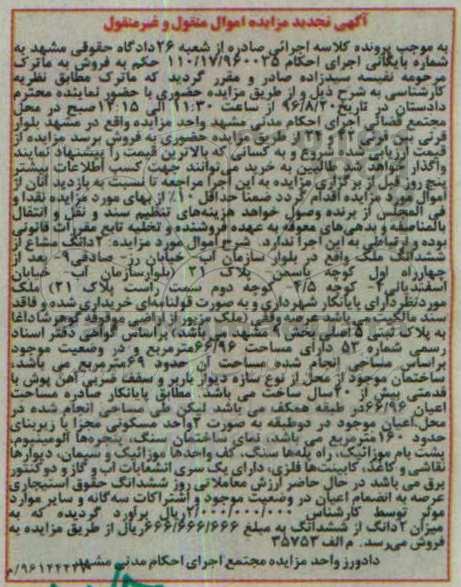 آگهی تجدید مزایده اموال منقول و غیرمنقول
به موجب پرونده کلاسه اجرائی صادره از شعبه ۲۶دادگاه حقوقی مشهد به
شماره بایگانی اجرای احکام ۱۱۰/۱۷/۹۶۰۰۳۵ حکم به فروش به ماترک
مرحومه نفیسه سیدزاده صادر و مقرر گردید که ماترک مطابق نظریه
کارشناسی به شرح ذیل و از طریق مزایده حضوری با حضور نماینده محترم
دادستان در تاریخ۹۶/۸/۲۰ از ساعت ۱۱:۳۰ الی ۱۲:۱۵صبح در محل
مجتمع قضائی اجرای احکام مدنی مشهد واحد مزایده واقع در مشهد بلوار
قرنی بین قرنی ۲۲ و ۲۴ از طریق مزایده حضوری به فروش برسد مزایده از
قیمت ارزیابی شده شروع و به کسانی که بالاترین قیمت را پیشنهاد نمایند
واگذار خواهد شد طالبین به خرید می‌توانند جهت کسب اطلاعات بیشتر
پنج روز قبل از برگزاری مزایده به این اجرا مراجعه تا نسبت به بازدید آنان از
اموال مورد مزایده اقدام گردد ضمنا حداقل ۱۰٪ از بهای مورد مزایده نقدا و
فی المجلس از برنده وصول خواهد هزینه‌های تنظیم سند و نقل و انتقال
بالمناصفه و بدهی‌های معوقه به عهده فروشنده و تخلیه تابع مقررات قانونی
بوده و ارتباطی به این اجرا ندارد. شرح اموال مورد مزایده: ۲دانگ مشاع از
ششدانگ ملک واقع در بلوار سازمان آب- خیابان رز- صادقی۹- بعد از
چهارراه اول کوچه یاسمن- پلاک ۲۱ (بلوارسازمان آب- خیابان
اسفندیانی۲- کوچه ۴/۵- کوچه دوم سمت راست پلاک ۲۱) ملک
موردنظر دارای پایانکار شهرداری و به صورت قولنامه‌ای خریداری شده و فاقد
سند مالکیت می باشد عرصه وقفی (ملک مزبور از اراضی موقوفه گوهرشادآغا
به پلاک ثبتی ۵اصلی بخش ۹ مشهد می باشد) براساس گواهی دفتر اسناد
رسمی شماره ۵۲ دارای مساحت ۶۶/۹۶مترمربع و در وضعیت موجود
براساس مساحی انجام شده مساحت آن حدود ۶۹مترمربع می باشد.
ساختمان موجود از محل از نوع سازه دیوار باربر و سقف ضربی آهن پوش با
قدمتی بیش از ۲۰سال ساخت می باشد. مطابق پایانکار صادره مساحت
اعیان ۶۶/۹۶در طبقه همکف می باشد لیکن طی مساحی انجام شده در
محل اعیان موجود در دوطبقه به صورت ۲واحد مسکونی مجزا با زیربنای
حدود ۱۶۰مترمربع می باشد، نمای ساختمان سنگ، پنجره‌ها آلومینیوم،
پشت بام موزائیک، راه پله‌ها سنگ، کف واحدها موزائیک و سیمان، دیوارها
نقاشی و کاغذ، کابینت‌ها فلزی، دارای یک سری انشعابات آب و گاز و دوکنتور
برق می باشد در حال حاضر ارزش معاملاتی روز ششدانگ حقوق استیجاری
عرصه به انضمام اعیان در وضعیت موجود و اشتراکات سه‌گانه و سایر موارد
موثر توسط کارشناس ۲/۰۰۰/۰۰۰/۰۰۰ریال برآورد گردیده که به
میزان ۲دانگ از ششدانگ به مبلغ ۶۶۶/۶۶۶/۶۶۶ریال از طریق مزایده به
فروش می‌رسد. م الف ۳۵۷۵۳
دادورز واحد مزایده مجتمع اجرای احکام مدنی مشهد